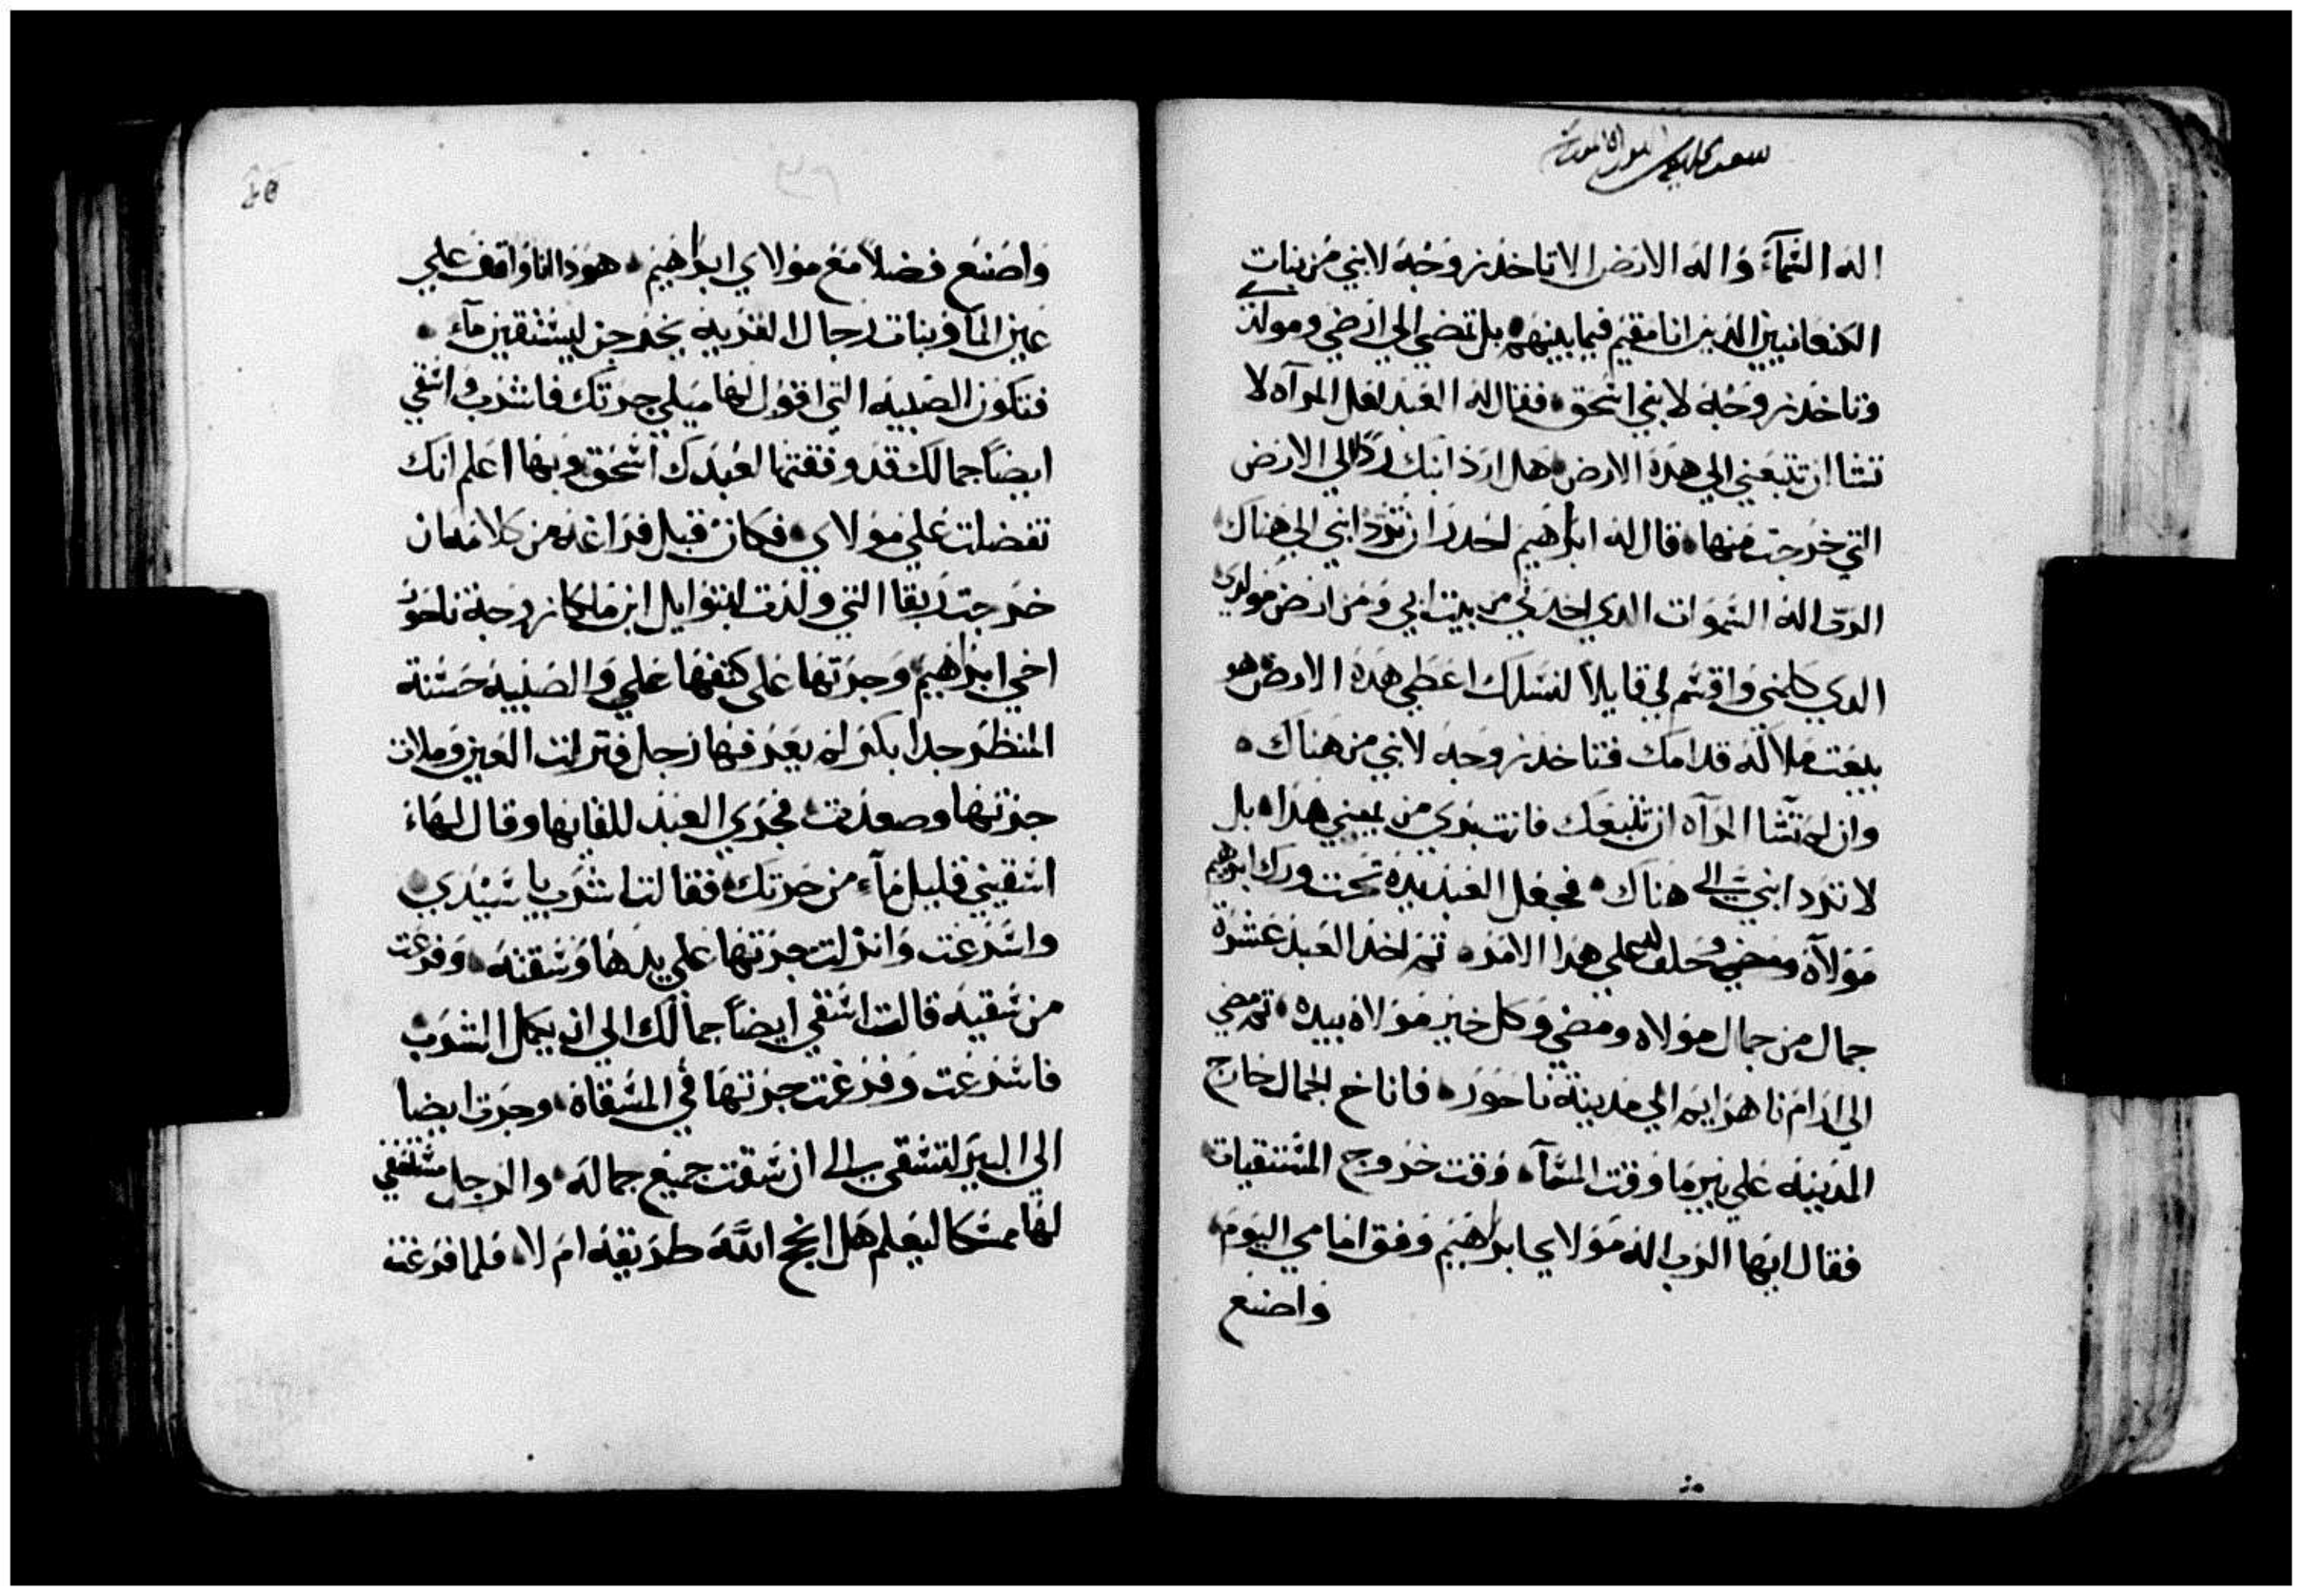 اله السَّمآءِ وَاله الارض الا تاخذ زوجَة لابني من بنات
الكنعانيين الذين انا مقيم فيما بينهم بل تمضي الي ارضي ومولدي
وتاخذ زوجَة لابني اسحق فقال له العبد لعل المرآه لا
تشا ان تتبعني الي هذه الارض هل ارد ابنك ردًا الي الارض
التي خرجت منها قال له ابراهيم احدر ان ترد ابني الي هناك
الرب اله السموات الدي اخدني من بيت ابي ومن ارض مولدي
الدي كلمني واقسم لي قايلاً لنسلك اعطي هده الارض هو
يبعت ملاكه قدامك فتاخد زوجه لابني من هناك
وان لم تشا المرآه ان تتبعك فانت بري من يميني هدا بل
لا ترد ابني الي هناك فجعل العبد يده تحت ورك ابراهيم
مولآه وحلف له علي هدا الامر تم اخد العبد عشرة
جمال من جمال مولاه ومضي وكل خير مولاه بيده تم مضي
الي ارام ناهرايم الي مدينة ناحور فاناخ الجمال خارج
المدينه علي بير ما وقت المسآء وقت خروج المستقيات
فقال ايها الرب اله مولاي ابراهيم وفق امامي اليوم
واصنع
واصنع فضلاً مع مولاي ابراهيم هودا انا واقف علي
عين الما وبنات رجال القريه يخرجن ليستقين مآء
فتكون الصبيه التي اقول لها ميلي جرتك فاشرب واسقي
ايضاً جمالك قد وفقتها لعبدك اسحق وبها اعلم انك
تفضلت علي مولاي فكان قبل فراغه من كلامه ان
خرجت ربقا التي ولدت لبتوايل ابن ملكا زوجة ناحور
اخي ابراهيم وجرتها علي كتفها علي والصبيه حسنة
المنظر جدا بكر لم يعرفها رجل فنزلت العين وملات
جرتها وصعدت فجري العبد للقايها وقال لها
اسقيني قليل مآء من جرتك فقالت اشرب يا سيدي
واسرعت وانزلت جرتها علي يدها وسقته وفرغت
من سقيه قالت اسقي ايضاً جمالك الي ان يكمل الشرب
فاسرعت وفرغت جرتها في المسقاة وجرت ايضا
الي البير لتسقي الي ان سقت جميع جماله والرجل مستقفي
لها ممسكا ليعلم هل انجح اللّه طريقه ام لا فلما فرغت